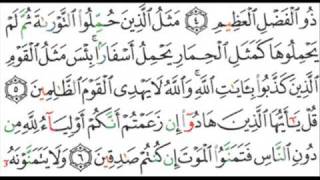 ذُو ٱلْفَضْلِ ٱلْعَظِيمِ ٤ مَثَلُ ٱلَّذِينَ حُمِّلُوا۟ ٱلتَّوْرَىٰةَ ثُمَّ لَمْ
يَحْمِلُوهَا كَمَثَلِ ٱلْحِمَارِ يَحْمِلُ أَسْفَارًۢا ۚ بِئْسَ مَثَلُ ٱلْقَوْمِ
ٱلَّذِينَ كَذَّبُوا۟ بِـَٔايَٰتِ ٱللَّهِ ۚ وَٱللَّهُ لَا يَهْدِى ٱلْقَوْمَ ٱلظَّٰلِمِينَ ٥
قُلْ يَٰٓأَيُّهَا ٱلَّذِينَ هَادُوٓا۟ إِن زَعَمْتُمْ أَنَّكُمْ أَوْلِيَآءُ لِلَّهِ مِن
دُونِ ٱلنَّاسِ فَتَمَنَّوُا۟ ٱلْمَوْتَ إِن كُنتُمْ صَٰدِقِينَ ٦ وَلَا يَتَمَنَّوْنَهُۥٓ